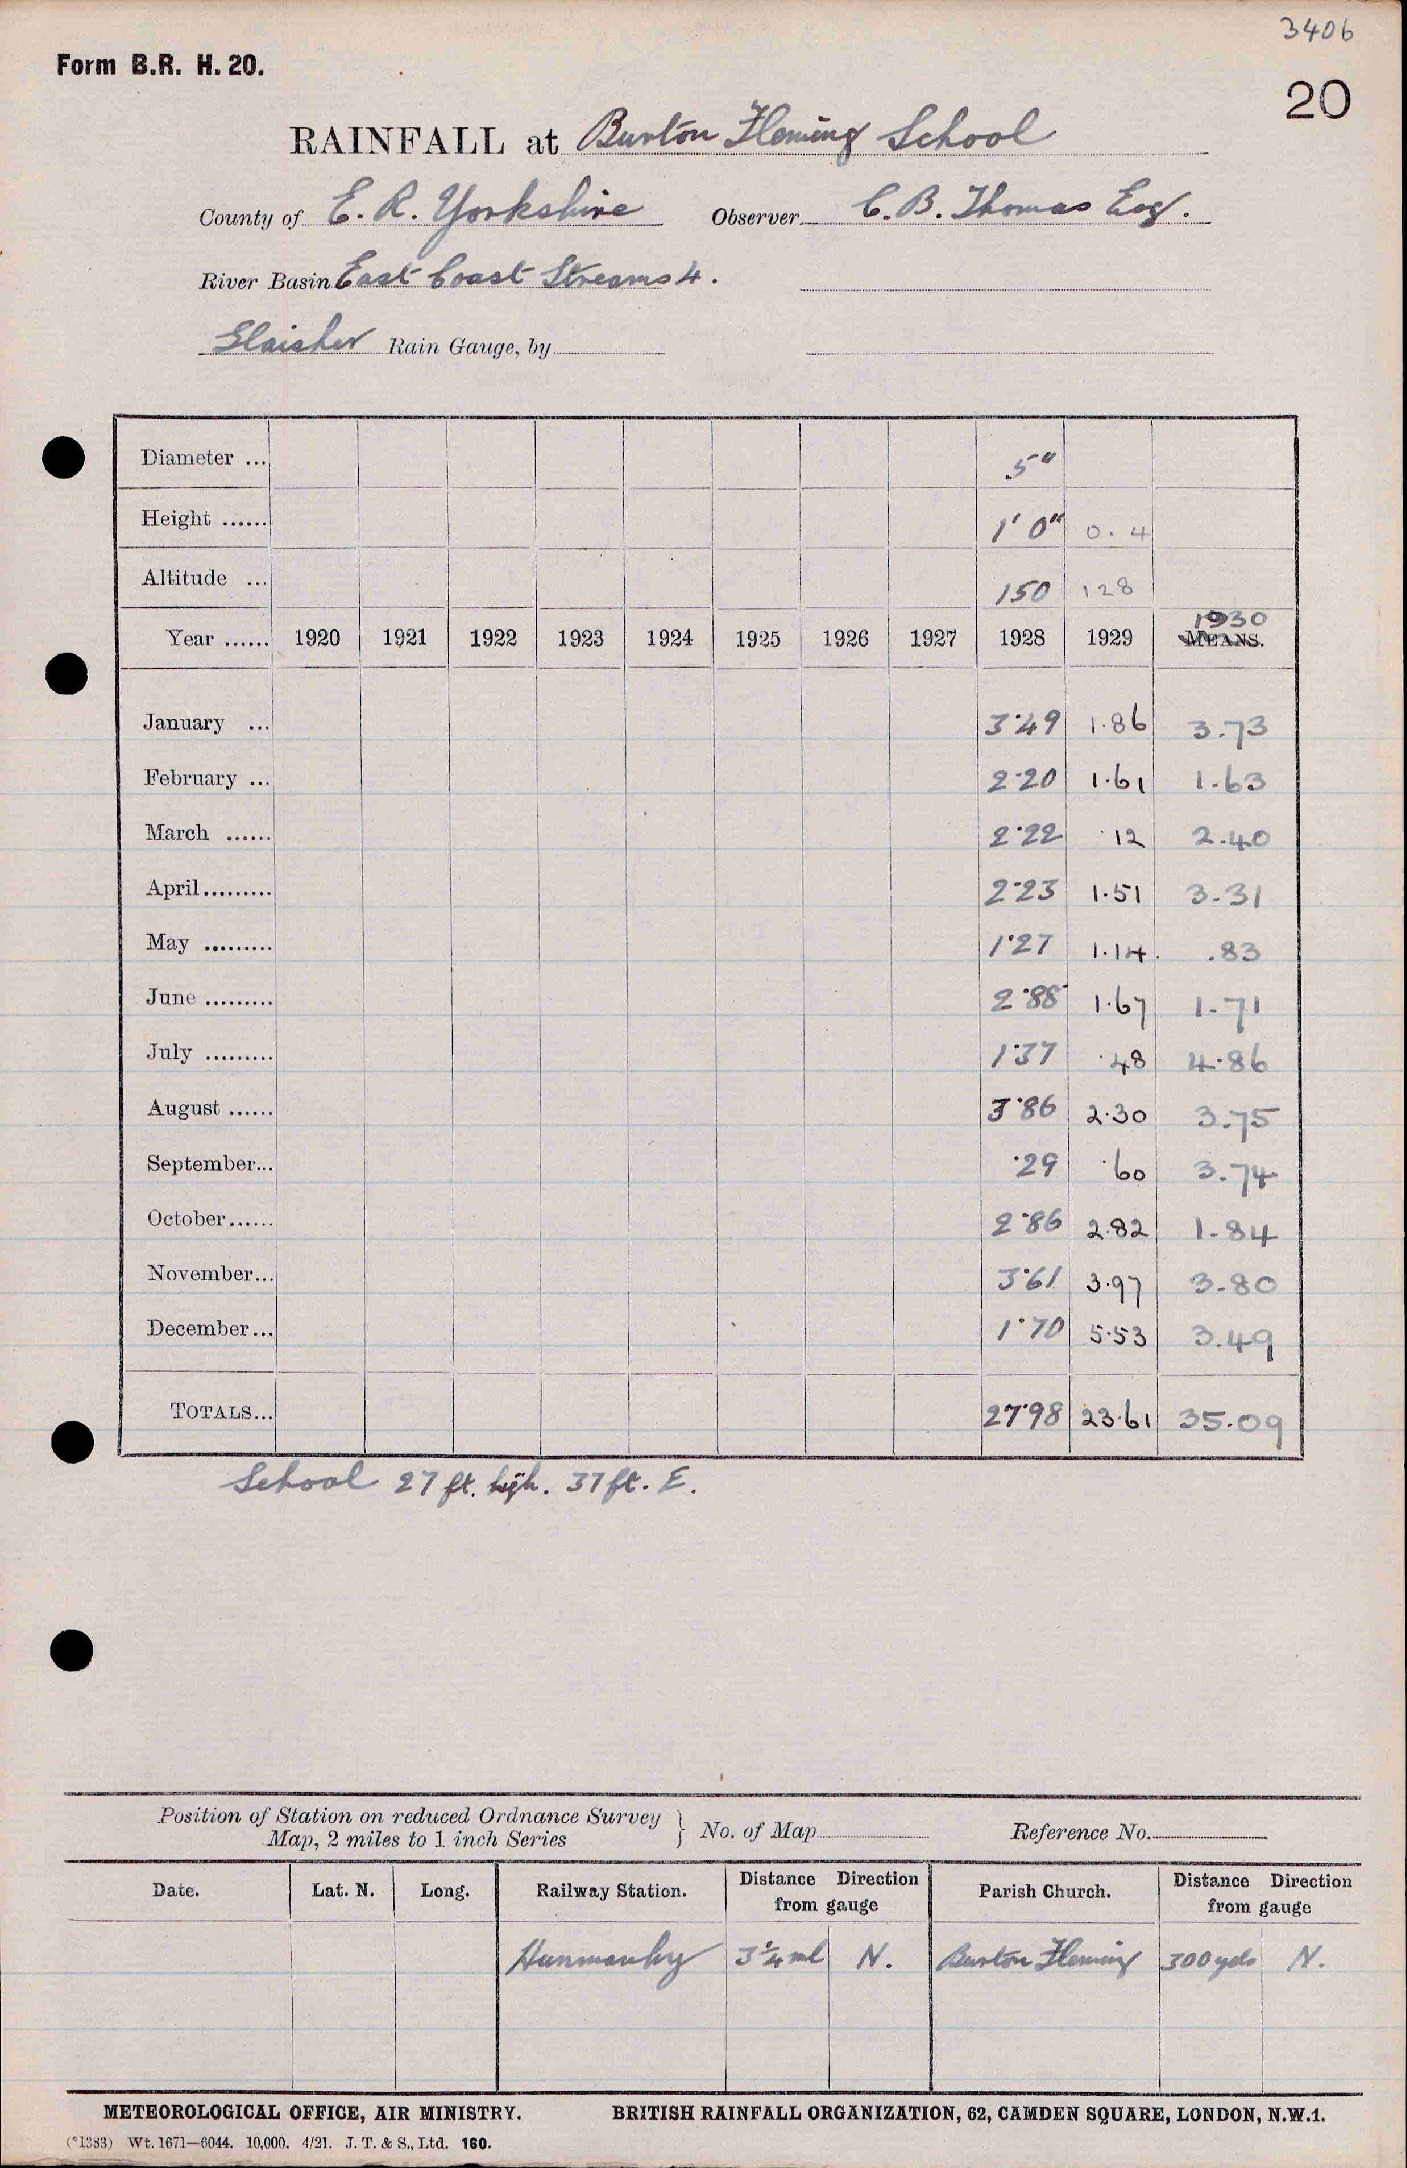 3406
Form B.R. H. 20.
20
RAINFALL at Burton Fleming School
County of E. R. Yorkshire Observer C. B. Thomas Esq.
River Basin East Coast Streams 4.
Glaisher Rain Gauge, by
Diameter ... 5"
Height ...... 1' 0" 0.4
Altitude ... 150 128
Year ...... 1920 1921 1922 1923 1924 1925 1926 1927 1928 1929 1930 MEANS.
January ... 3·49 1·86 3.73
February ... 2·20 1·61 1.63
March ...... 2·22 ·12 2.40
April......... 2·23 1·51 3.31
May ......... 1·27 1.14. .83
June ......... 2·88 1·67 1.71
July ......... 1·37 ·48 4.86
August ...... 3·86 2·30 3.75
September... ·29 ·60 3.74
October...... 2·86 2.82 1.84
November... 3·61 3·97 3.80
December... 1·70 5·53 3.49
TOTALS... 27·98 23·61 35.09
School 27 ft. high. 37 ft. E.
Position of Station on reduced Ordnance Survey
Map, 2 miles to 1 inch Series } No. of Map Reference No.
Date. Lat. N. Long. Railway Station. Distance Direction from gauge Parish Church. Distance Direction from gauge
Hunmanby 3¼ ml N. Burton Fleming 300 yds N.
METEOROLOGICAL OFFICE, AIR MINISTRY. BRITISH RAINFALL ORGANIZATION, 62, CAMDEN SQUARE, LONDON, N.W.1.
(*1383) Wt. 1671—6044. 10,000. 4/21. J. T. & S., Ltd. 160.